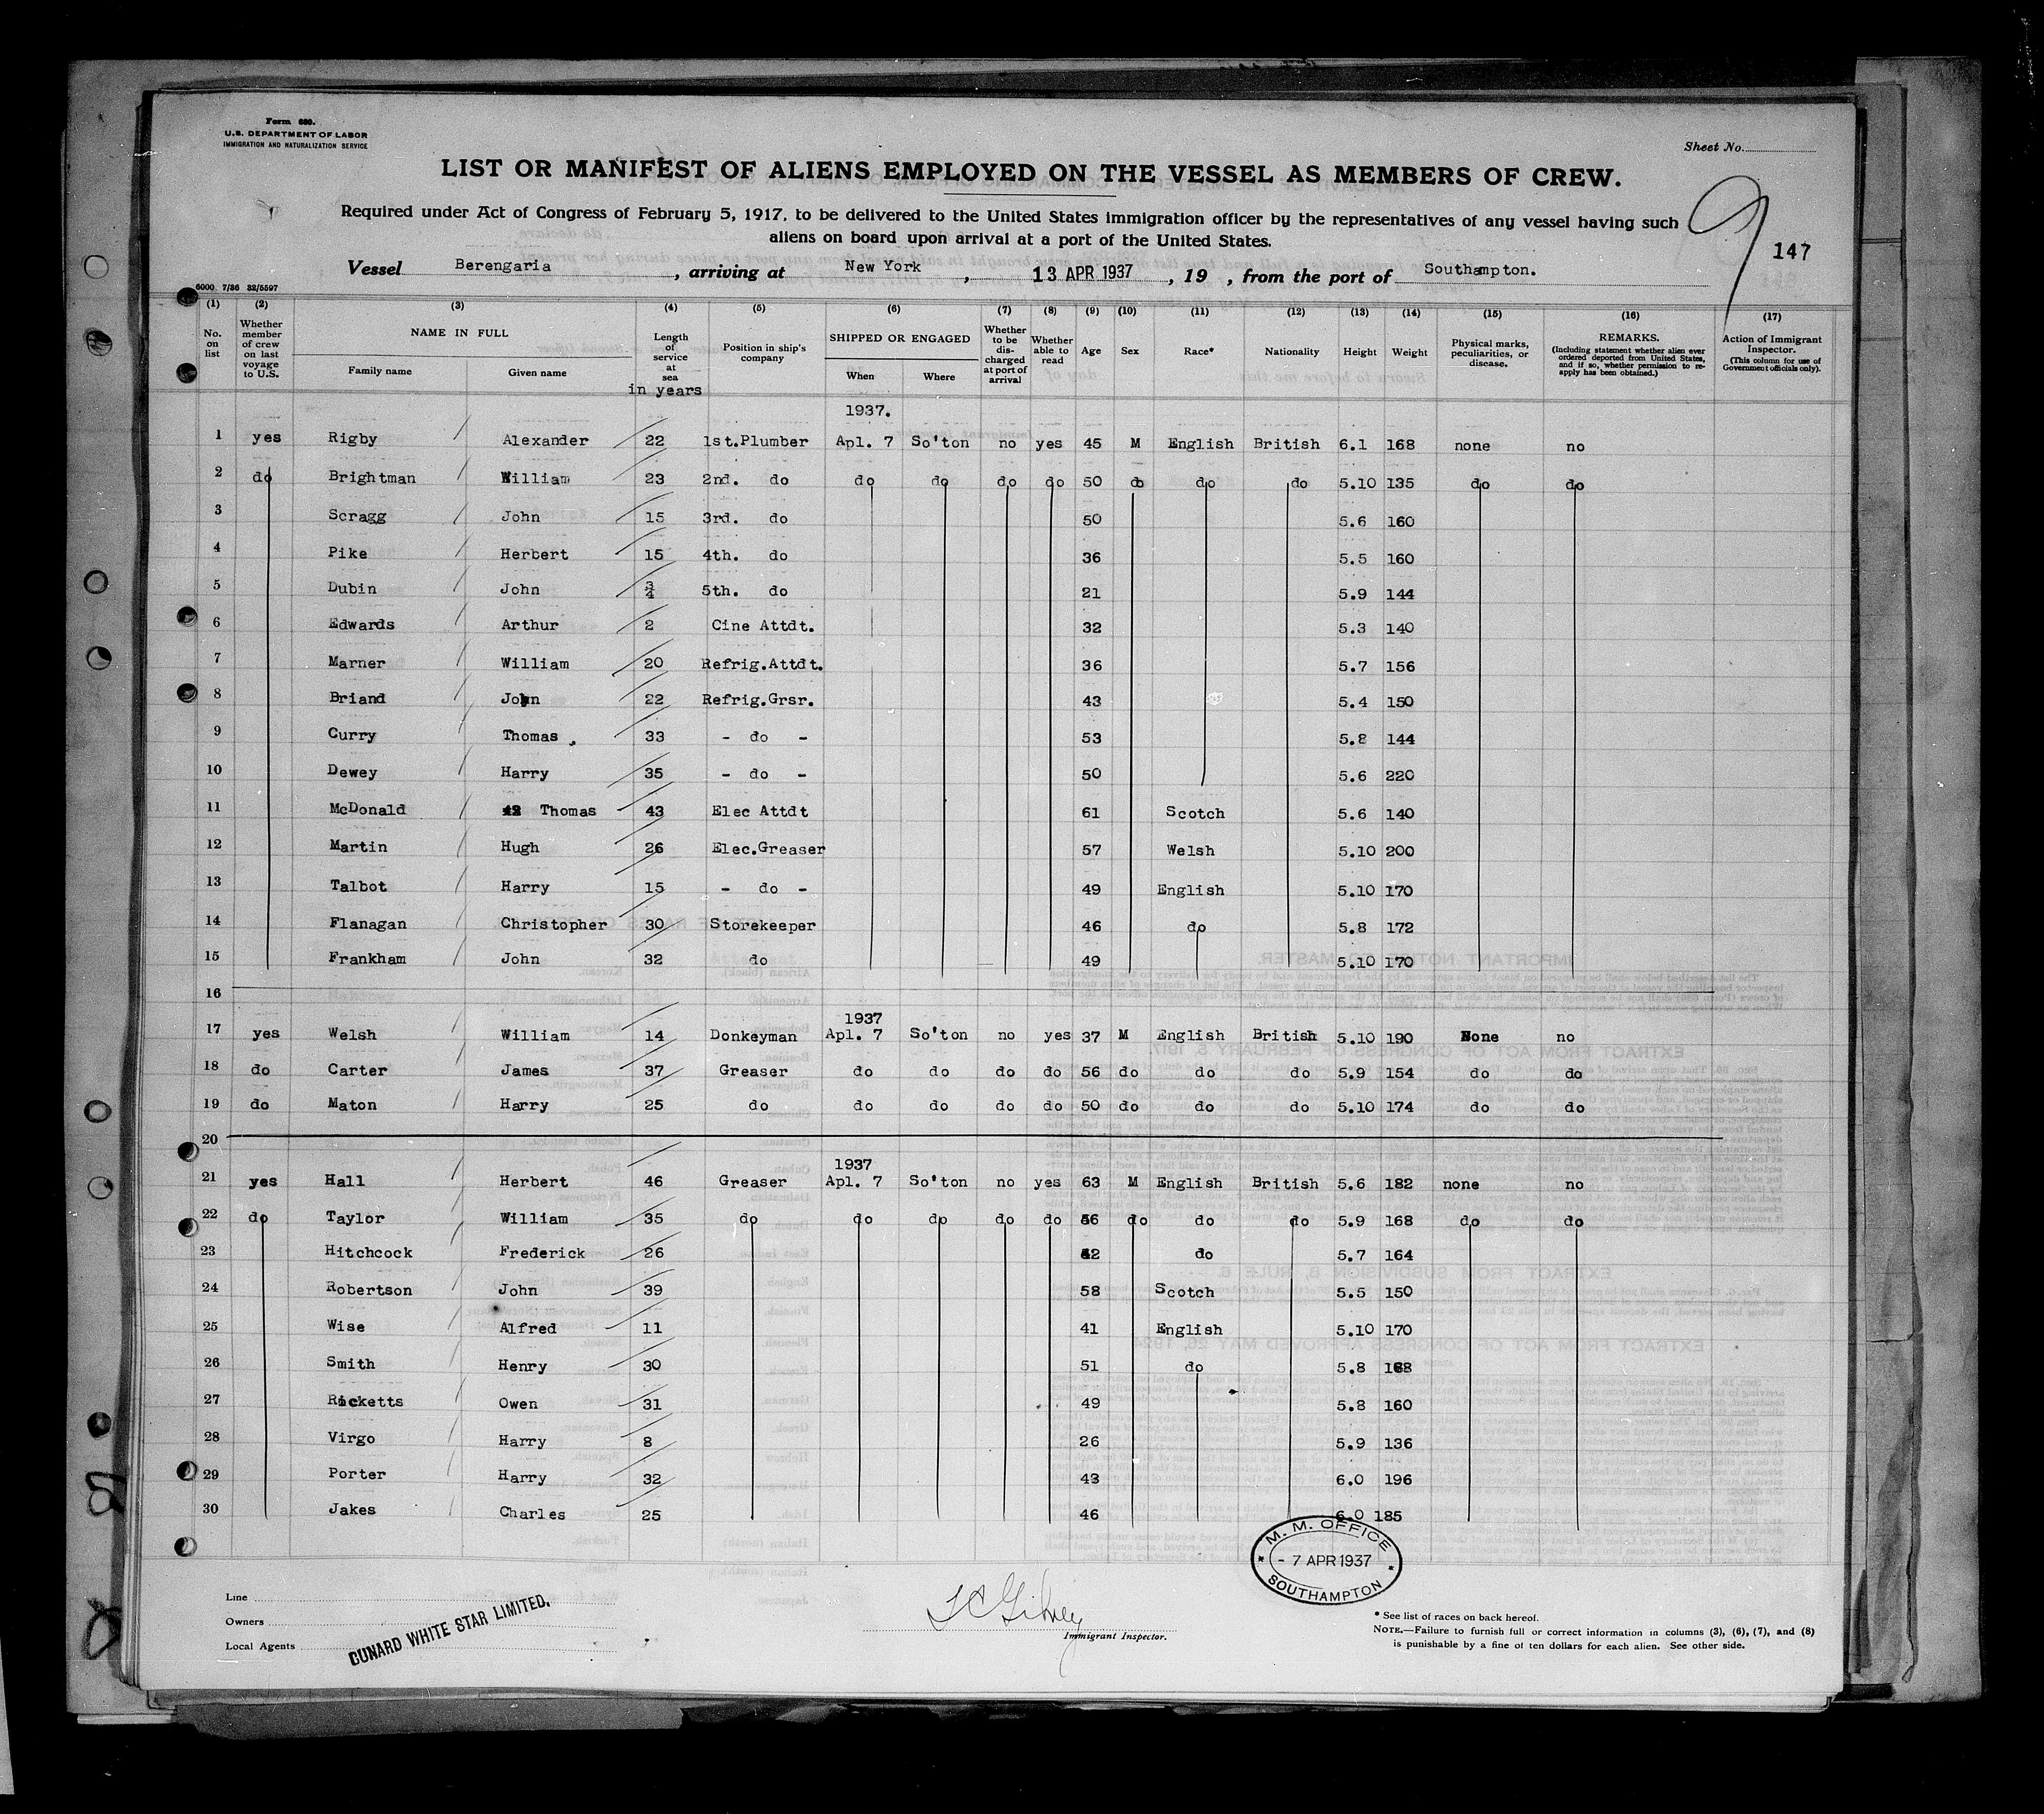 Form 680.
U.S. DEPARTMENT OF LABOR
IMMIGRATION AND NATURALIZATION SERVICE
Sheet No.
LIST OR MANIFEST OF ALIENS EMPLOYED ON THE VESSEL AS MEMBERS OF CREW.
Required under Act of Congress of February 5, 1917, to be delivered to the United States immigration officer by the representatives of any vessel having such
aliens on board upon arrival at a port of the United States.
147
Vessel Berengaria, arriving at New York, 13 APR 1937, 19 , from the port of Southampton.
6000 7/36 32/5597
(1) (2) (3) (4) (5) (6) (7) (8) (9) (10) (11) (12) (13) (14) (15) (16) (17)
No. on list
Whether member of crew on last voyage to U.S.
NAME IN FULL
Family name
Given name
Length of service at sea
in years
Position in ship's company
SHIPPED OR ENGAGED
When
Where
Whether to be discharged at port of arrival
Whether able to read
Age
Sex
Race*
Nationality
Height
Weight
Physical marks, peculiarities, or disease.
REMARKS.
(Including statement whether alien ever ordered deported from United States, and if so, whether permission to reapply has been obtained.)
Action of Immigrant Inspector.
(This column for use of Government officials only).
1937.
1 yes Rigby Alexander 22 1st.Plumber Apl. 7 So'ton no yes 45 M English British 6.1 168 none no
2 do Brightman William 23 2nd. do do do do do 50 do do do 5.10 135 do do
3 Scragg John 15 3rd. do 50 5.6 160
4 Pike Herbert 15 4th. do 36 5.5 160
5 Dubin John 3/4 5th. do 21 5.9 144
6 Edwards Arthur 2 Cine Attdt. 32 5.3 140
7 Marner William 20 Refrig.Attdt. 36 5.7 156
8 Briand John 22 Refrig.Grsr. 43 5.4 150
9 Curry Thomas 33 - do - 53 5.8 144
10 Dewey Harry 35 - do - 50 5.6 220
11 McDonald Thomas 43 Elec Attdt 61 Scotch 5.6 140
12 Martin Hugh 26 Elec.Greaser 57 Welsh 5.10 200
13 Talbot Harry 15 - do - 49 English 5.10 170
14 Flanagan Christopher 30 Storekeeper 46 do 5.8 172
15 Frankham John 32 do 49 5.10 170
16
1937
17 yes Welsh William 14 Donkeyman Apl. 7 So'ton no yes 37 M English British 5.10 190 None no
18 do Carter James 37 Greaser do do do do 56 do do do 5.9 154 do do
19 do Maton Harry 25 do do do do do 50 do do do 5.10 174 do do
20
1937
21 yes Hall Herbert 46 Greaser Apl. 7 So'ton no yes 63 M English British 5.6 182 none no
22 do Taylor William 35 do do do do do 56 do do do 5.9 168 do do
23 Hitchcock Frederick 26 42 do 5.7 164
24 Robertson John 39 58 Scotch 5.5 150
25 Wise Alfred 11 41 English 5.10 170
26 Smith Henry 30 51 do 5.8 168
27 Ricketts Owen 31 49 5.8 160
28 Virgo Harry 8 26 5.9 136
29 Porter Harry 32 43 6.0 196
30 Jakes Charles 25 46 6.0 185
M. M. OFFICE
- 7 APR 1937
SOUTHAMPTON
Line
Owners
Local Agents
CUNARD WHITE STAR LIMITED.
Immigrant Inspector.
* See list of races on back hereof.
NOTE.—Failure to furnish full or correct information in columns (3), (6), (7), and (8)
is punishable by a fine of ten dollars for each alien. See other side.